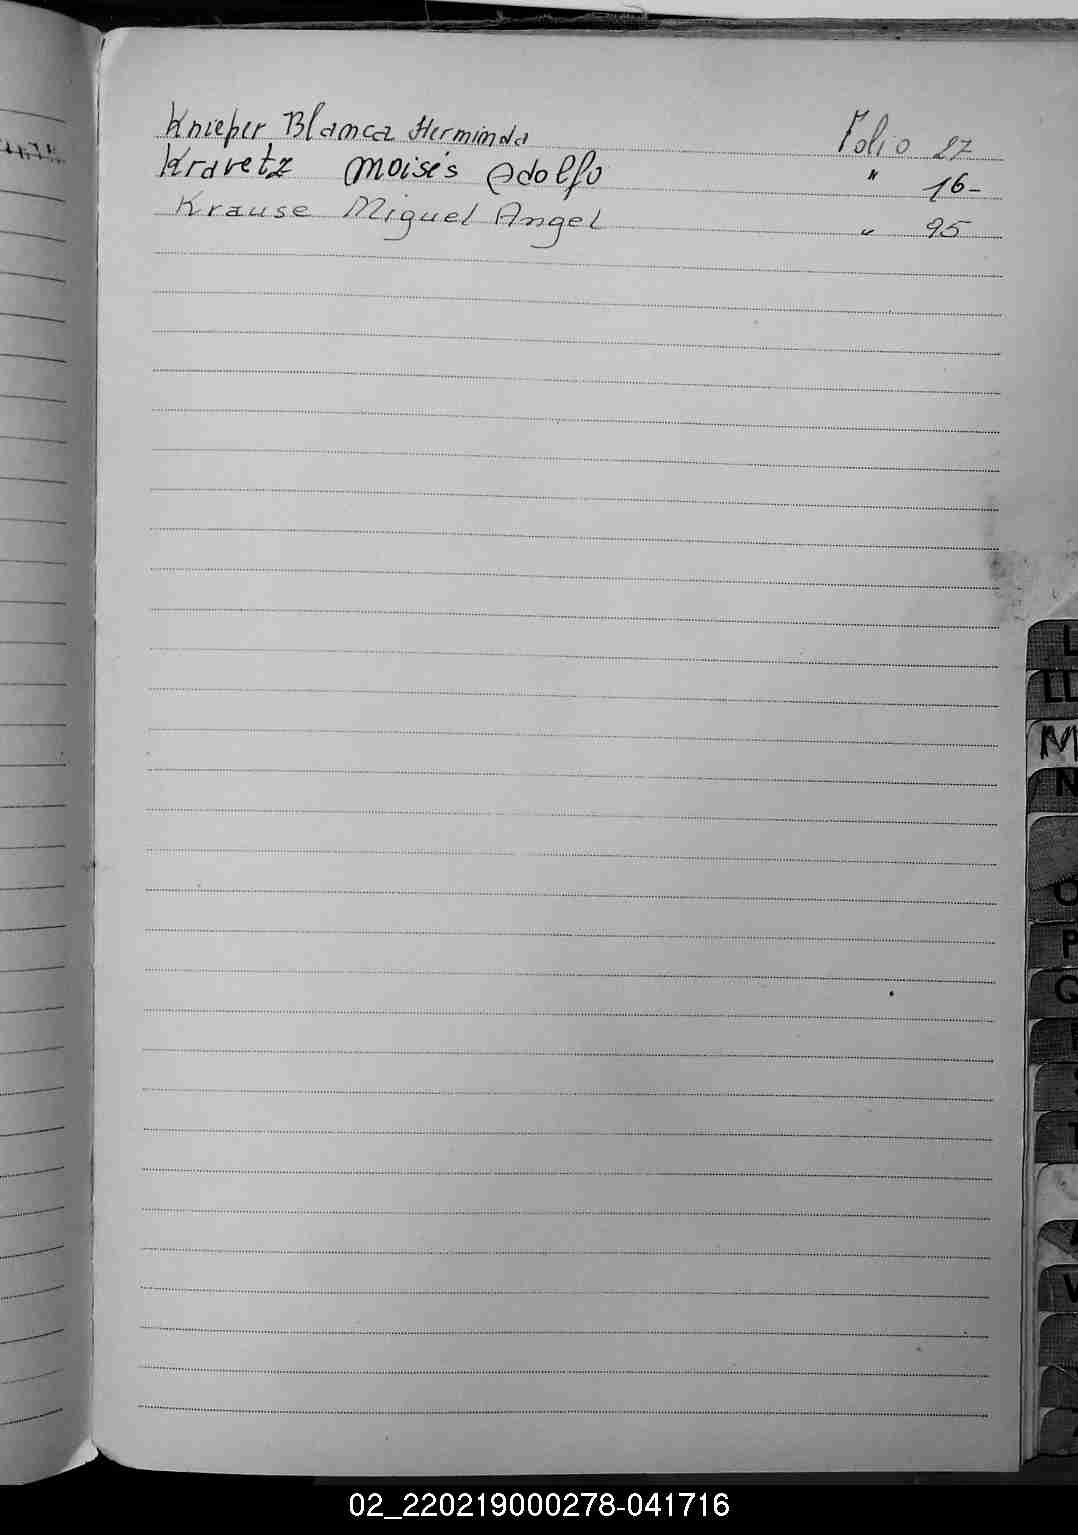 Knieper Blanca Herminda Folio 27
Kravetz Moisés Adolfo " 16-
Krause Miguel Angel " 95
L
LL
M
N
O
P
Q
T
V
02_220219000278-041716